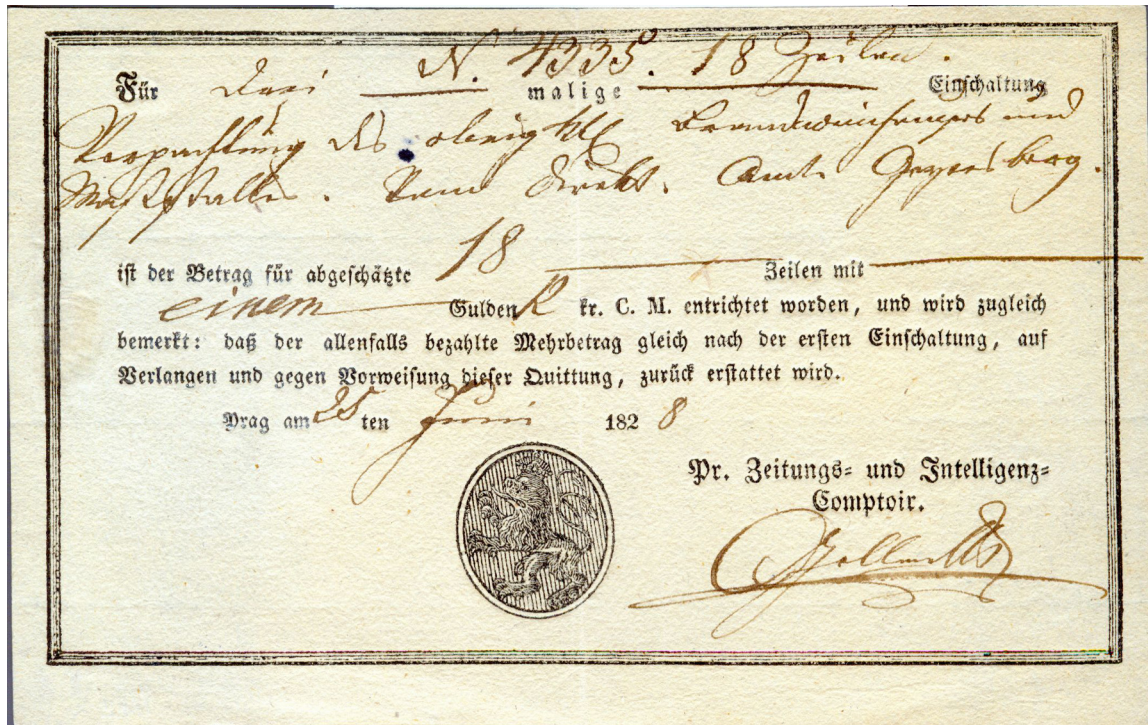 N. 4335. 18 Zeilen.
Für drei malige Einschaltung
Verpachtung des obrigktl Brandweinhauses und
Maststalles. Vom Direkt. Amte Geyersberg.
ist der Betrag für abgeschätzte 18 Zeilen mit
einem Gulden kr. C. M. entrichtet worden, und wird zugleich
bemerkt: daß der allenfalls bezahlte Mehrbetrag gleich nach der ersten Einschaltung, auf
Verlangen und gegen Vorweisung dieser Quittung, zurück erstattet wird.
Prag am 25 ten Juni 1828
Pr. Zeitungs- und Intelligenz-
Comptoir.